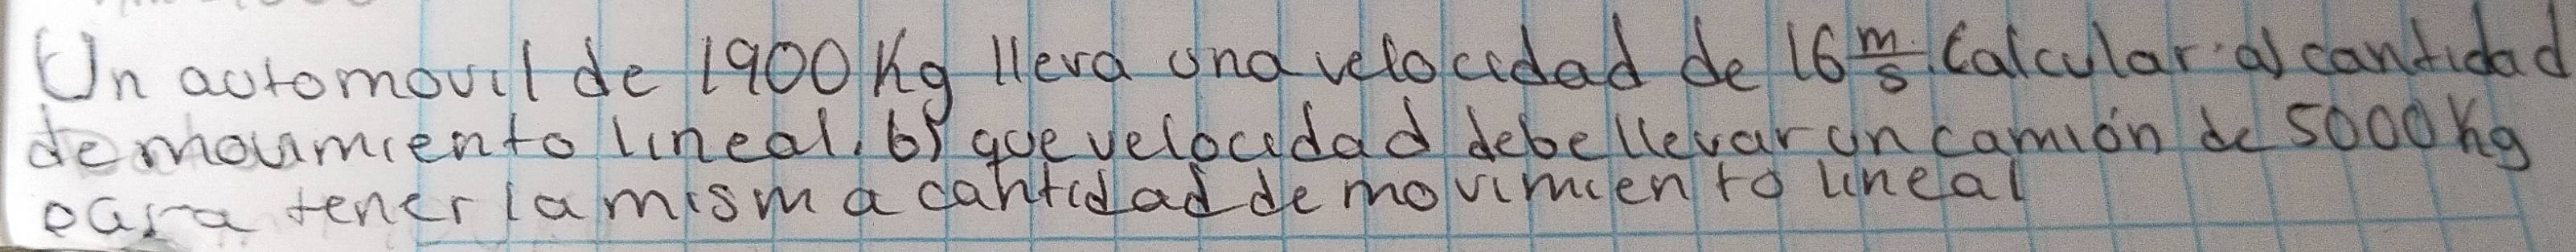 Un automovil de 1900 Kg lleva una velocidad de 16 m/s. Calcular: a) cantidad
de movimiento lineal. b) que velocidad debe llevar un camión de 5000 Kg
para tener la misma cantidad de movimiento lineal